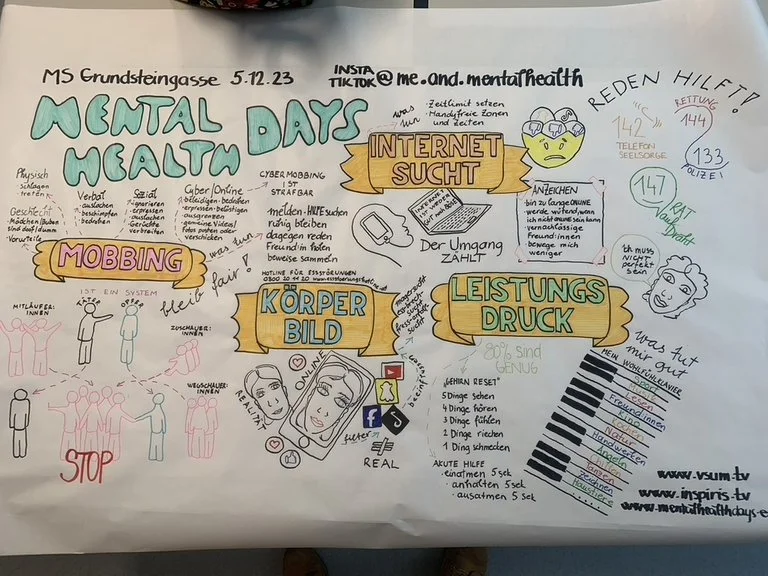 MS Grundsteingasse 5.12.23
INSTA
TIKTOK @ me.and.mentalhealth
REDEN HILFT!
MENTAL
HEALTH
DAYS
RETTUNG
144
142
TELEFON
SEELSORGE
133
POLIZEI
147
RAT
Auf Draht
was
tun
· Zeitlimit setzen
· Handyfreie Zonen
und Zeiten
INTERNET
SUCHT
INTERNET
Der Umgang
ZÄHLT
ANZEICHEN
· bin zu lange ONLINE
· werde wütend, wenn
ich nicht ONLINE sein kann
· vernachlässige
Freund:innen
· bewege mich
weniger
Physisch
· schlagen
· treten
Geschlecht
· Vorurteile
Verbal
· auslachen
· beschimpfen
· bedrohen
Sozial
· ignorieren
· erpressen
· auslachen
· Gerüchte
verbreiten
Cyber/Online
· beleidigen · bedrohen
· erpressen · belästigen
· ausgrenzen
· gemeine Videos/
Fotos posten oder
verschicken
CYBERMOBBING
IST
STRAFBAR
was tun
· melden · HILFE suchen
· ruhig bleiben
· dagegen reden
· Freund:in holen
· beweise sammeln
MOBBING
IST EIN SYSTEM
bleib fair!
MITLÄUFER:
INNEN
TÄTER
OPFER
ZUSCHAUER:
INNEN
WEGSCHAUER:
INNEN
STOP
HOTLINE FÜR ESSSTÖRUNGEN
0800 20 11 20
KÖRPER
BILD
magersucht
sucht
REALITÄT
ONLINE
filter
REAL
LEISTUNGS
DRUCK
80% sind
GENUG
Ich muss
NICHT
perfekt
sein
"GEHIRN RESET"
5 Dinge sehen
4 Dinge hören
3 Dinge fühlen
2 Dinge riechen
1 Ding schmecken
AKUTE HILFE
· einatmen 5 sek
· anhalten 5 sek
· ausatmen 5 sek
was tut
mir gut
MEIN WOHLFÜHLKLAVIER
Sport
Lesen
Freund:innen
Kino
Kochen
Natur
Handwerken
Angeln
Tanzen
Zeichnen
Haustiere
www.vsum.tv
www.inspiris.tv
www.mentalhealthdays.e